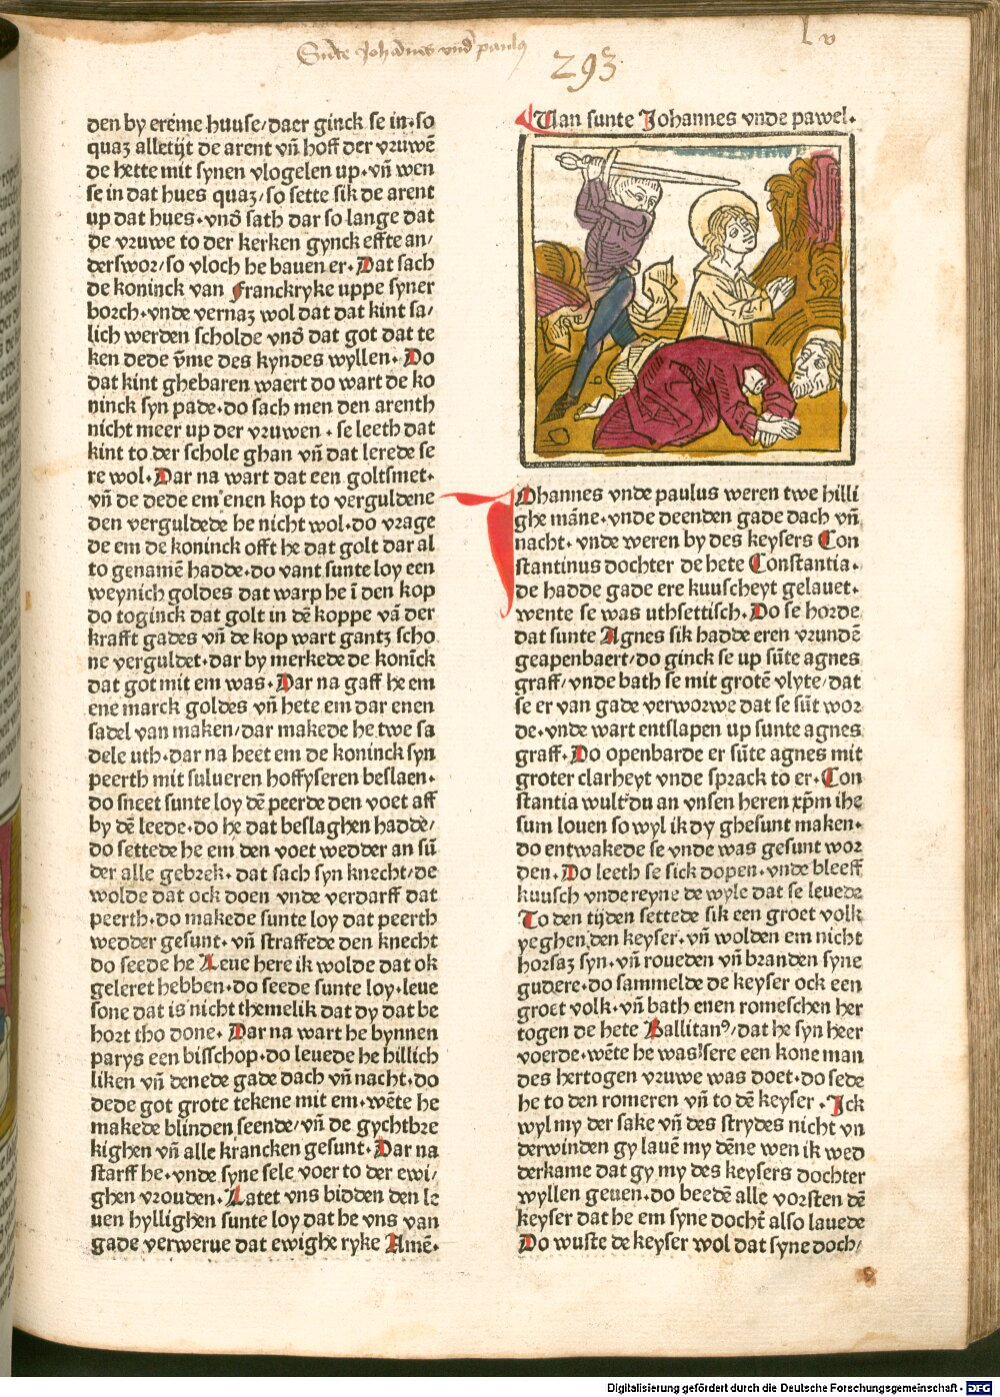 Sūte Johānes vnd paulus
Lv
293
den by ereme huuse/daer ginck se in·so
quaz alletijt de arent vn̄ hoff der vzuwē
de hette mit synen vlogelen up·vn̄ wen
se in dat hues quaz/so sette sik de arent
up dat hues·vnd̄ sath dar so lange dat
de vzuwe to der kerken gynck effte an/
derswoz/so vloch he bauen er·Dat sach
de koninck van Franckryke uppe syner
bozch·vnde vernaz wol dat dat kint sa/
lich werden scholde vnd̄ dat got dat te
ken dede v̄me des kyndes wyllen·Do
dat kint ghebaren waert do wart de ko
ninck syn pade·do sach men den arenth
nicht meer up der vzuwen·se leeth dat
kint to der schole ghan vn̄ dat lerede se
re wol·Dar na wart dat een goltsmet·
vn̄ de dede em enen kop to verguldene
den verguldede he nicht wol·do vzage
de em de koninck offt he dat golt dar al
to genamē hadde·do vant sunte loy een
weynich goldes dat warp he ī den kop
do toginck dat golt in dē koppe vā der
krafft gades vn̄ de kop wart gantz scho
ne verguldet·dar by merkede de konīck
dat got mit em was·Dar na gaff he em
ene marck goldes vn̄ hete em dar enen
sadel van maken/dar makede he twe sa
dele uth·dar na heet em de koninck syn
peerth mit sulueren hoffyseren beslaen·
do sneet sunte loy dē peerde den voet aff
by dē leede·do he dat beslaghen hadde/
do settede he em den voet wedder an sū
der alle gebzek·dat sach syn knecht/de
wolde dat ock doen vnde verdarff dat
peerth·do makede sunte loy dat peerth
wedder gesunt·vn̄ straffede den knecht
do seede he Leue here ik wolde dat ok
geleret hebben·do seede sunte loy·leue
sone dat is nicht themelik dat dy dat be
hort tho done·Dar na wart he bynnen
parys een bisschop·do leuede he hillich
liken vn̄ denede gade dach vn̄ nacht·do
dede got grote tekene mit em·wēte he
makede blinden seende/vn̄ de gychtbze
kighen vn̄ alle krancken gesunt·Dar na
starff he·vnde syne sele voer to der ewi/
ghen vzouden·Latet vns bidden den le
uen hyllighen sunte loy dat he vns van
gade verwerue dat ewighe ryke Amē·
Uan sunte Johannes vnde pawel·
IOhannes vnde paulus weren twe hilli
ghe māne·vnde deenden gade dach vn̄
nacht·vnde weren by des keysers Con
stantinus dochter de hete Constantia·
de hadde gade ere kuuscheyt gelauet·
wente se was uthsettisch·Do se horde
dat sunte Agnes sik hadde eren vzundē
geapenbaert/do ginck se up sūte agnes
graff/vnde bath se mit grotē vlyte/dat
se er van gade verwozwe dat se sūt woz
de·vnde wart entslapen up sunte agnes
graff·Do openbarde er sūte agnes mit
groter clarheyt vnde spzack to er·Con
stantia wultdu an vnsen heren xp̄m ihe
sum louen so wyl ik dy ghesunt maken·
do entwakede se vnde was gesunt woz
den·Do leeth se sick dopen·vnde bleeff
kuusch vnde reyne de wyle dat se leuede
To den tijden settede sik een groet volk
yeghen den keyser·vn̄ wolden em nicht
horsaz syn·vn̄ roueden vn̄ branden syne
gudere·do sammelde de keyser ock een
groet volk·vn̄ bath enen romeschen her
togen de hete Gallitanꝰ/dat he syn heer
voerde·wēte he was sere een kone man
des hertogen vzuwe was doet·do sede
he to den romeren vn̄ to dē keyser·Ick
wyl my der sake vn̄ des strydes nicht vn
derwinden gy lauē my dēne wen ik wed
derkame dat gy my des keysers dochter
wyllen geuen·do beedē alle vozsten dē
keyser dat he em syne docht̄ also lauede
Do wuste de keyser wol dat syne doch/
Digitalisierung gefördert durch die Deutsche Forschungsgemeinschaft - DFG